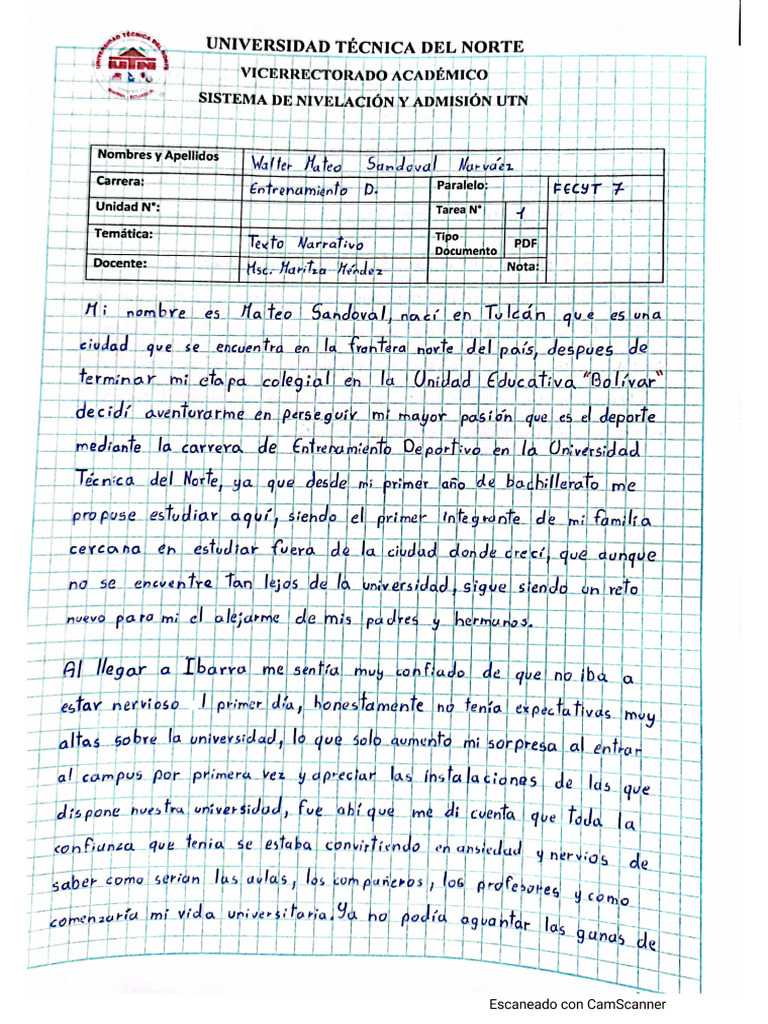 UNIVERSIDAD TÉCNICA DEL NORTE
VICERRECTORADO ACADÉMICO
SISTEMA DE NIVELACIÓN Y ADMISIÓN UTN
UNIVERSIDAD TÉCNICA DEL NORTE
IBARRA - ECUADOR
Nombres y Apellidos Walter Mateo Sandoval Narváez
Carrera: Entrenamiento D. Paralelo: FECYT 7
Unidad N°: Tarea N° 1
Temática: Texto Narrativo Tipo Documento PDF
Docente: Msc. Maritza Méndez Nota:
Mi nombre es Mateo Sandoval, nací en Tulcán que es una
ciudad que se encuentra en la frontera norte del país, despues de
terminar mi etapa colegial en la Unidad Educativa "Bolívar"
decidí aventurarme en perseguir mi mayor pasión que es el deporte
mediante la carrera de Entrenamiento Deportivo en la Universidad
Técnica del Norte, ya que desde mi primer año de bachillerato me
propuse estudiar aquí, siendo el primer integrante de mi familia
cercana en estudiar fuera de la ciudad donde crecí, que aunque
no se encuentre tan lejos de la universidad, sigue siendo un reto
nuevo para mi el alejarme de mis padres y hermanos.
Al llegar a Ibarra me sentía muy confiado de que no iba a
estar nervioso l primer día, honestamente no tenía expectativas muy
altas sobre la universidad, lo que solo aumento mi sorpresa al entrar
al campus por primera vez y apreciar las instalaciones de las que
dispone nuestra universidad, fue ahí que me di cuenta que toda la
confianza que tenia se estaba convirtiendo en ansiedad y nervios de
saber como serian las aulas, los compañeros, los profesores y como
comenzaría mi vida universitaria. Ya no podía aguantar las ganas de
Escaneado con CamScanner